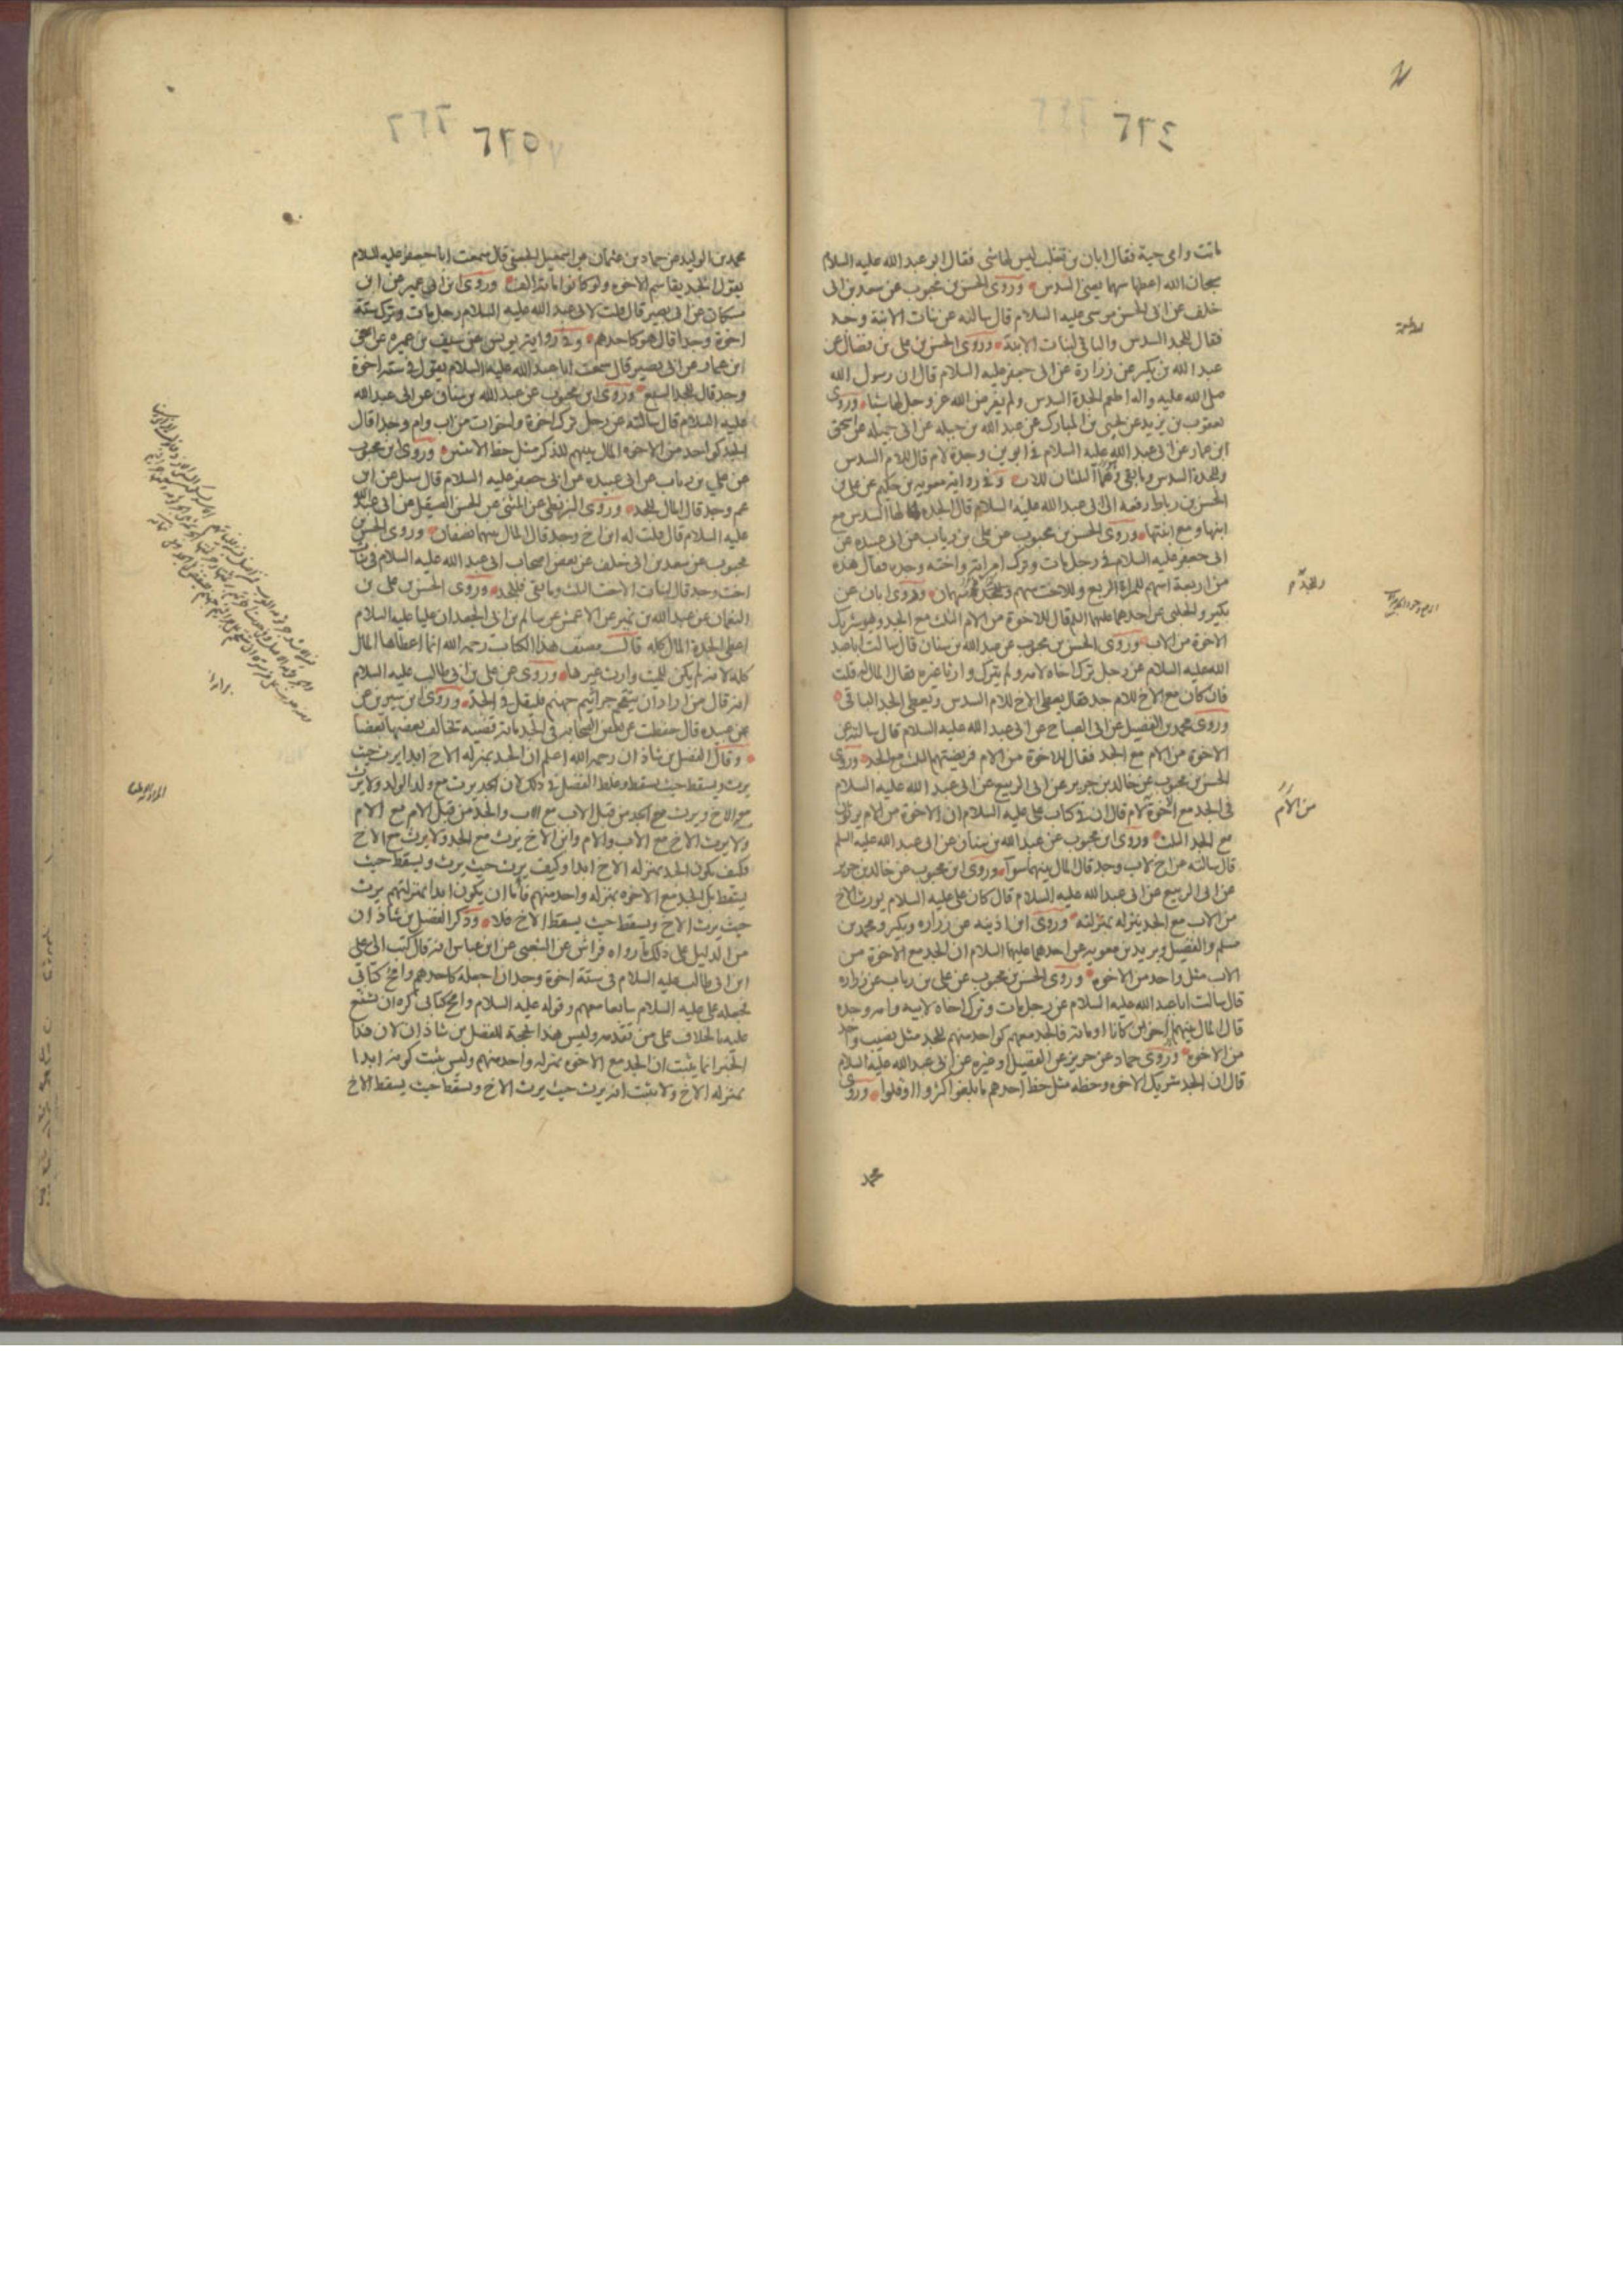 ٦٢٤
ماتت وامى حية فقال ابان بن تغلب ليس لها شى فقال ابو عبد الله عليه السلام
سبحان الله اعطها سهما يعنى السدس وروى الحسن بن محبوب عن سعد بن ابى
خلف عن ابى الحسن موسى عليه السلام قال سالته عن بنات الابنة وجد
فقال للجد السدس والباقى لبنات الابنة وروى الحسن بن على بن فضال عن
عبد الله بن بكير عن زرارة عن ابى جعفر عليه السلام قال ان رسول الله
صلى الله عليه واله اطعم الجدة السدس ولم يفرض الله عز وجل لها شيئا وروى
يعقوب بن يزيد عن يحيى بن المبارك عن عبد الله بن جبله عن ابى جميله عن اسحق
ابن عمار عن ابى عبد الله عليه السلام فى ابوين وجدة لام قال للام السدس
وللجدة السدس وما بقى وهو الثلثان للاب وفى رواية معوية بن حكيم عن على بن
الحسن بن رباط رفعه الى ابى عبد الله عليه السلام قال الجدة لها السدس مع
ابنها ومع ابنتها وروى الحسن بن محبوب عن على بن رياب عن ابى عبيده عن
ابى جعفر عليه السلام فى رجل مات وترك امراته واخته وجده فقال هذه
من اربعة اسهم للمراة الربع وللاخت سهم وللجد سهمان وروى ابان عن
بكير والحلبى عن احدهما عليهما السلام قال للاخوة من الام الثلث مع الجد وهو شريك
الاخوة من الاب وروى الحسن بن محبوب عن عبد الله بن سنان قال سالت ابا عبد
الله عليه السلام عن رجل ترك اخاه لامه ولم يترك وارثا غيره فقال المال له قلت
فان كان مع الاخ للام جد فقال يعطى الاخ للام السدس ويعطى الجد الباقى
وروى محمد بن الفضيل عن ابى الصباح عن ابى عبد الله عليه السلام قال سالته عن
الاخوة من الام مع الجد فقال للاخوة من الام فريضتهم الثلث مع الجد وروى
الحسن بن محبوب عن خالد بن جرير عن ابى الربيع عن ابى عبد الله عليه السلام
فى الجد مع اخوة لام قال ان فى كتاب على عليه السلام ان الاخوة من الام يرثون
مع الجد الثلث وروى ابن محبوب عن عبد الله بن سنان عن ابى عبد الله عليه السلم
قال سالته عن اخ لاب وجد قال المال بينهما سوآء وروى ابن محبوب عن خالد بن جرير
عن ابى الربيع عن ابى عبد الله عليه السلام قال كان على عليه السلام يورث الاخ
من الاب مع الجد ينزله بمنزلته وروى ابن اذينه عن زراره وبكير ومحمد بن
مسلم والفضيل وبريد بن معويه عن احدهما عليهما السلام ان الجد مع الاخوة من
الاب مثل واحد من الاخوه وروى الحسن بن محبوب عن على بن رياب عن زراره
قال سالت ابا عبد الله عليه السلام عن رجل مات وترك اخاه لابيه وامه وجده
قال المال بينهما اخوين كانا او مائة فالجد معهم كواحد منهم للجد مثل نصيب واحد
من الاخوه وروى حماد عن حريز عن الفضيل او غيره عن ابى عبد الله عليه السلام
قال ان الجد شريك الاخوه وحظه مثل حظ احدهم ما بلغوا كثروا او قلوا وروى
محمد
وللجد
من الام
٦٢٥
محمد بن الوليد عن حماد بن عثمان عن اسمعيل الجعفى قال سمعت ابا جعفر عليه السلام
يقول الجد يقاسم الاخوه ولو كانوا مائة الف وروى ابن ابى عمير عن ابن
مسكان عن ابى بصير قال قلت لابى عبد الله عليه السلام رجل مات وترك ستة
اخوة وجدا قال هو كاحدهم وفى رواية يونس عن سيف بن عميره عن اسحق
ابن عمار عن ابى بصير قال سمعت ابا عبد الله عليه السلام يقول فى ستة اخوة
وجد قال للجد السبع وروى ابن محبوب عن عبد الله بن سنان عن ابى عبد الله
عليه السلام قال سالته عن رجل ترك اخوة واخوات من اب وام وجدا قال
الجد كواحد من الاخوه المال بينهم للذكر مثل حظ الانثيين وروى ابن محبوب
عن على بن رياب عن ابى عبيده عن ابى جعفر عليه السلام قال سئل عن ابن
عم وجد قال المال للجد وروى البزنطى عن المثنى عن الحسن الصيقل عن ابى عبد الله
عليه السلام قال قلت له ابن اخ وجد قال المال بينهما نصفان وروى الحسن بن
محبوب عن سعد بن ابى خلف عن بعض اصحاب ابى عبد الله عليه السلام فى بنات
اخت وجد قال لبنات الاخت الثلث وما بقى فللجد وروى الحسن بن على بن
النعمان عن عبد الله بن نمير عن الاعمش عن سالم بن ابى الجعد ان عليا عليه السلام
اعطى الجدة المال كله قال مصنف هذا الكتاب رحمه الله انما اعطاها المال
كله لانه لم يكن للميت وارث غيرها وروى عن على بن ابى طالب عليه السلام
انه قال من اراد ان يتقحم جراثيم جهنم فليقل فى الجد وروى ابن سيرين عن
عن عبيده قال حفظت عن بعض الصحابة فى الجد مائة قضيه تخالف بعضها بعضا
وقال الفضل بن شاذان رحمه الله اعلم ان الجد بمنزله الاخ ابدا يرث حيث
يرث ويسقط حيث يسقط وغلط الفضل فى ذلك لان الجد يرث مع ولد الولد ولا يرث
معه الاخ ويرث الجد من قبل الاب مع الاب والجد من قبل الام مع الام
ولا يرث الاخ مع الاب والام وابن الاخ يرث مع الجد ولا يرث مع الاخ
فكيف يكون الجد بمنزله الاخ ابدا وكيف يرث حيث يرث ويسقط حيث
يسقط بل الجد مع الاخوه بمنزله واحد منهم فاما ان يكون ابدا بمنزلتهم يرث
حيث يرث الاخ ويسقط حيث يسقط الاخ فلا وذكر الفضل بن شاذان
من الدليل على ذلك ما رواه فراس عن الشعبى عن ابن عباس انه قال كتب الى على
ابن ابى طالب عليه السلام فى ستة اخوة وجد ان اجعله كاحدهم وامح كتابى
فجعله على عليه السلام سابعا معهم وقوله عليه السلام وامح كتابى كره ان يشنع
عليه بالخلاف على من تقدمه وليس هذا بحجة للفضل بن شاذان لان هذا
الخبر انما يثبت ان الجد مع الاخوه بمنزله واحد منهم وليس يثبت كونه ابدا
بمنزله الاخ ولا يثبت انه يرث حيث يرث الاخ ويسقط حيث يسقط الاخ